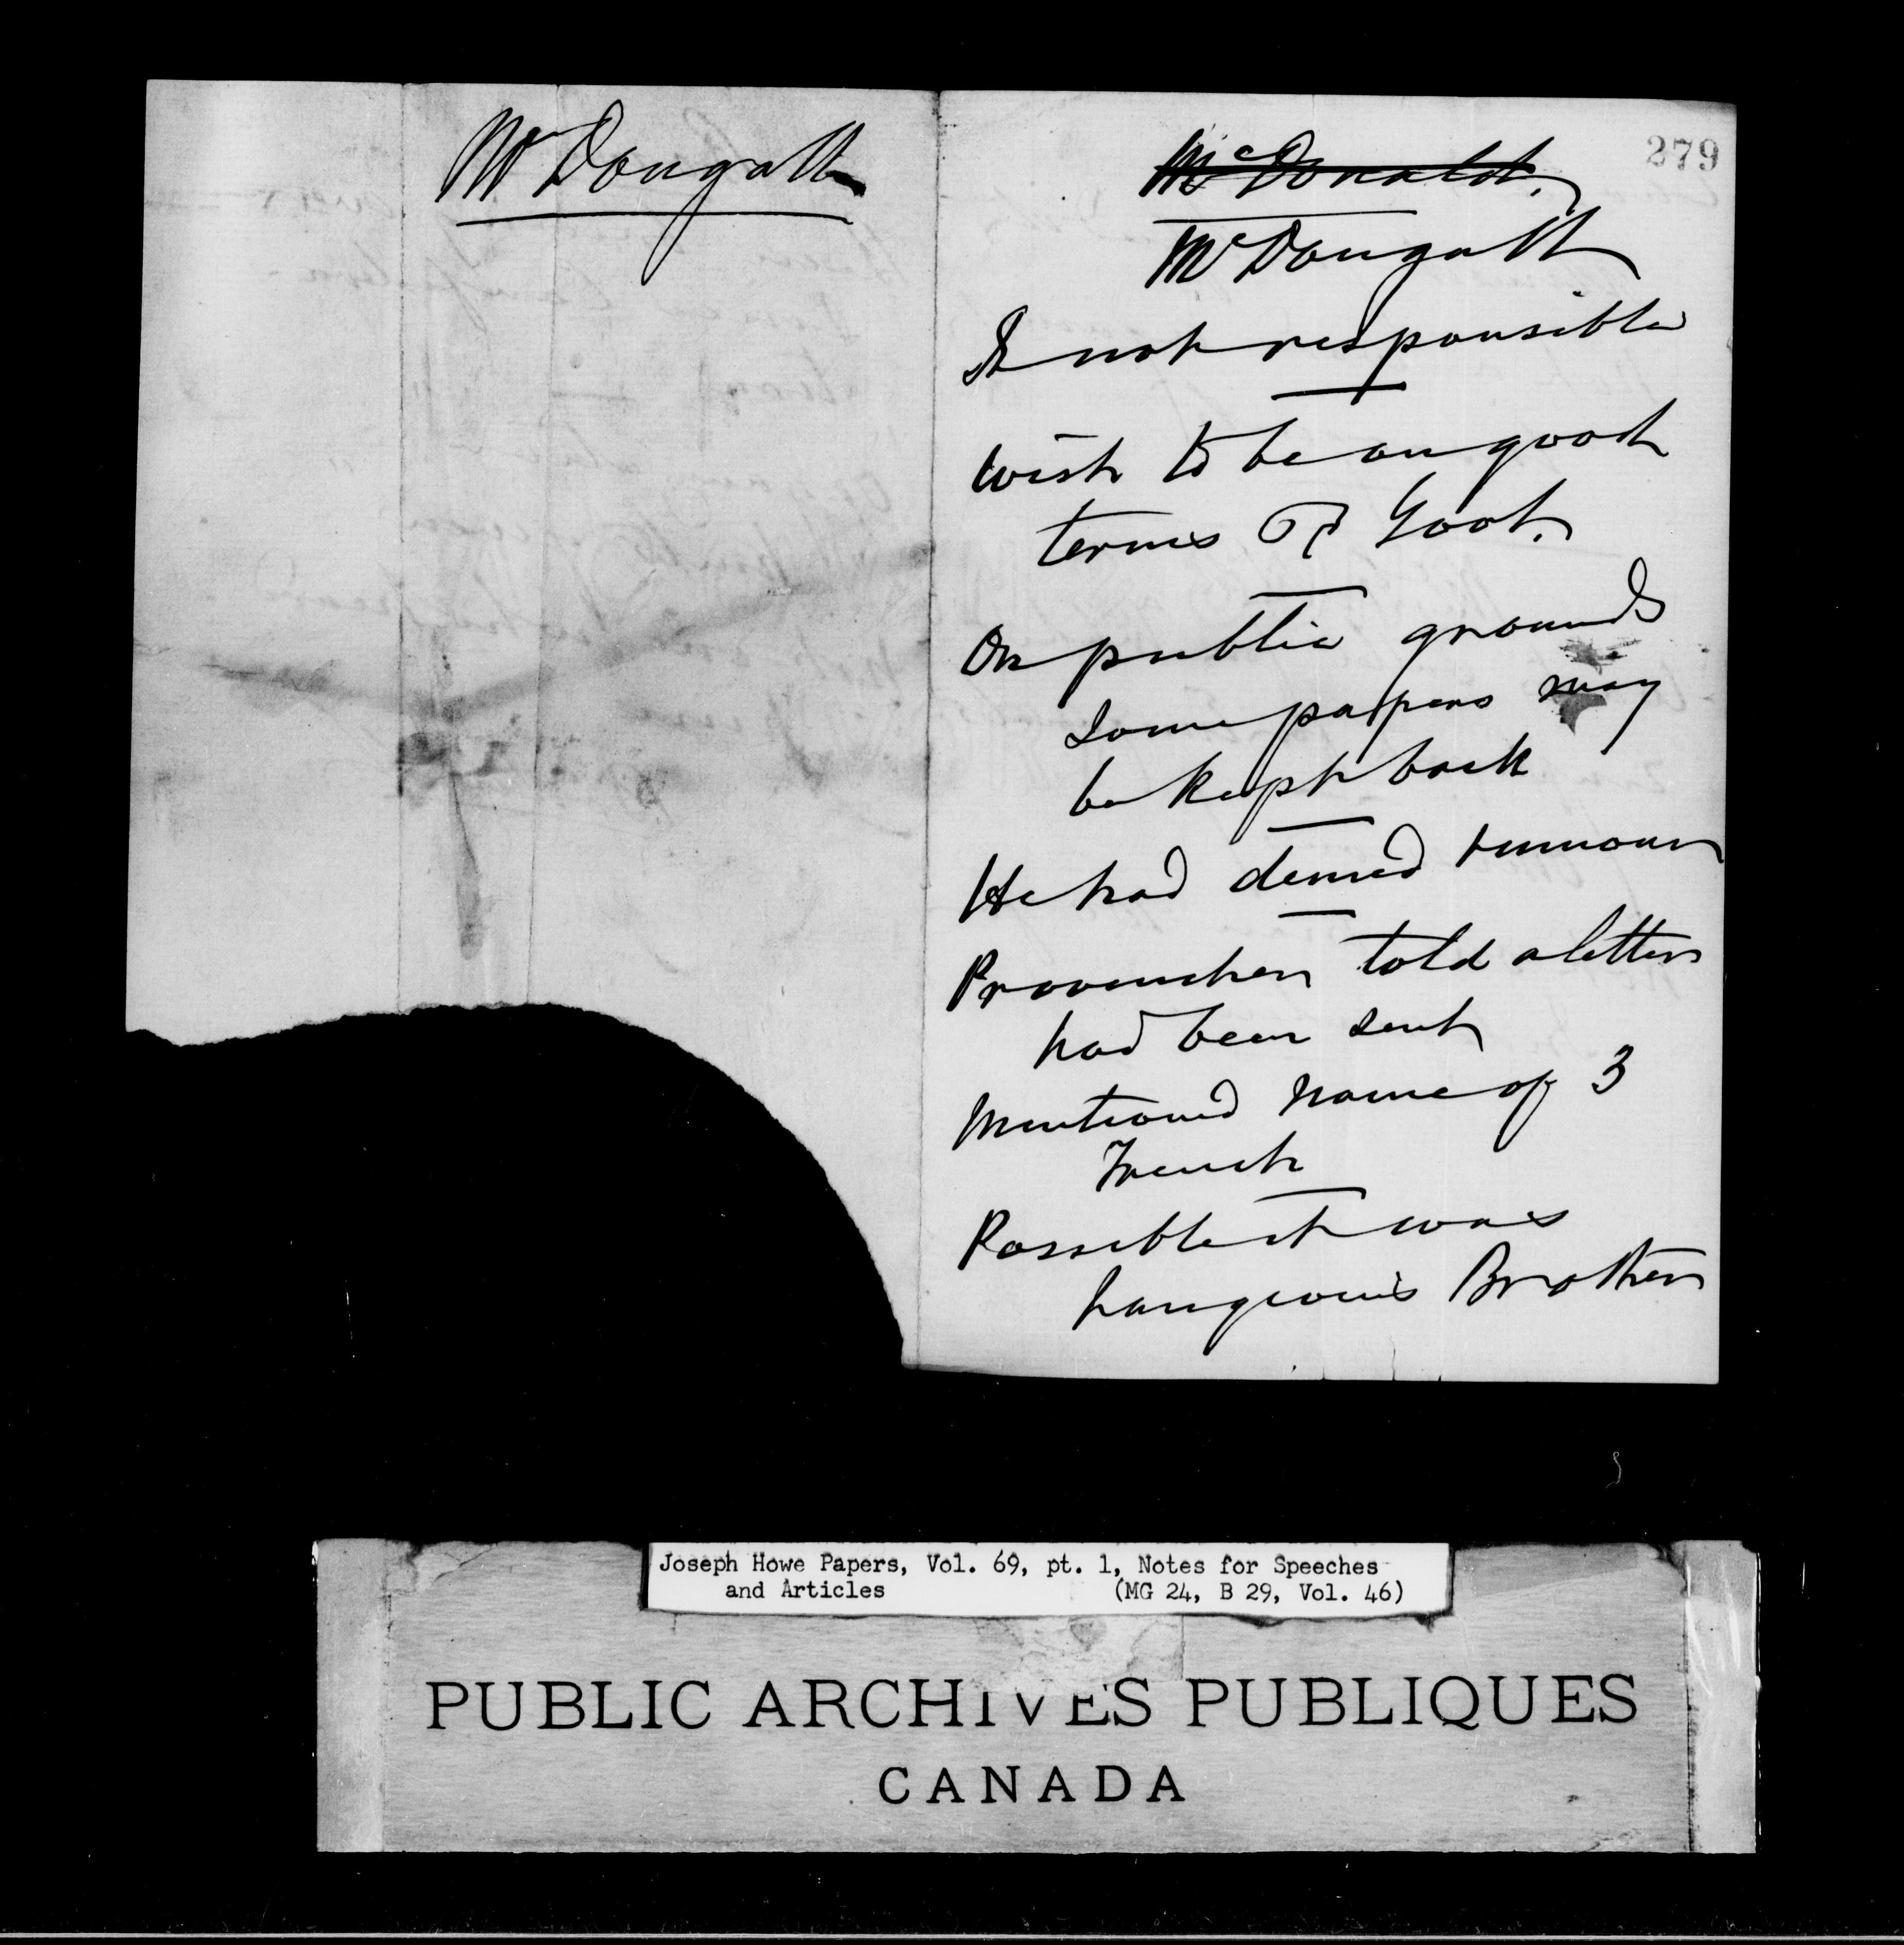 McDougall
279
McDonald.
McDougall
Is not responsible
Wish to be on good
terms Govt.
On public grounds
some papers may
be kept back
He had denied rumour
Provencher told a letter
had been sent
Mentioned name of 3
French
Possible it was
Langevin's Brother
Joseph Howe Papers, Vol. 69, pt. 1, Notes for Speeches
and Articles (MG 24, B 29, Vol. 46)
PUBLIC ARCHIVES PUBLIQUES
CANADA